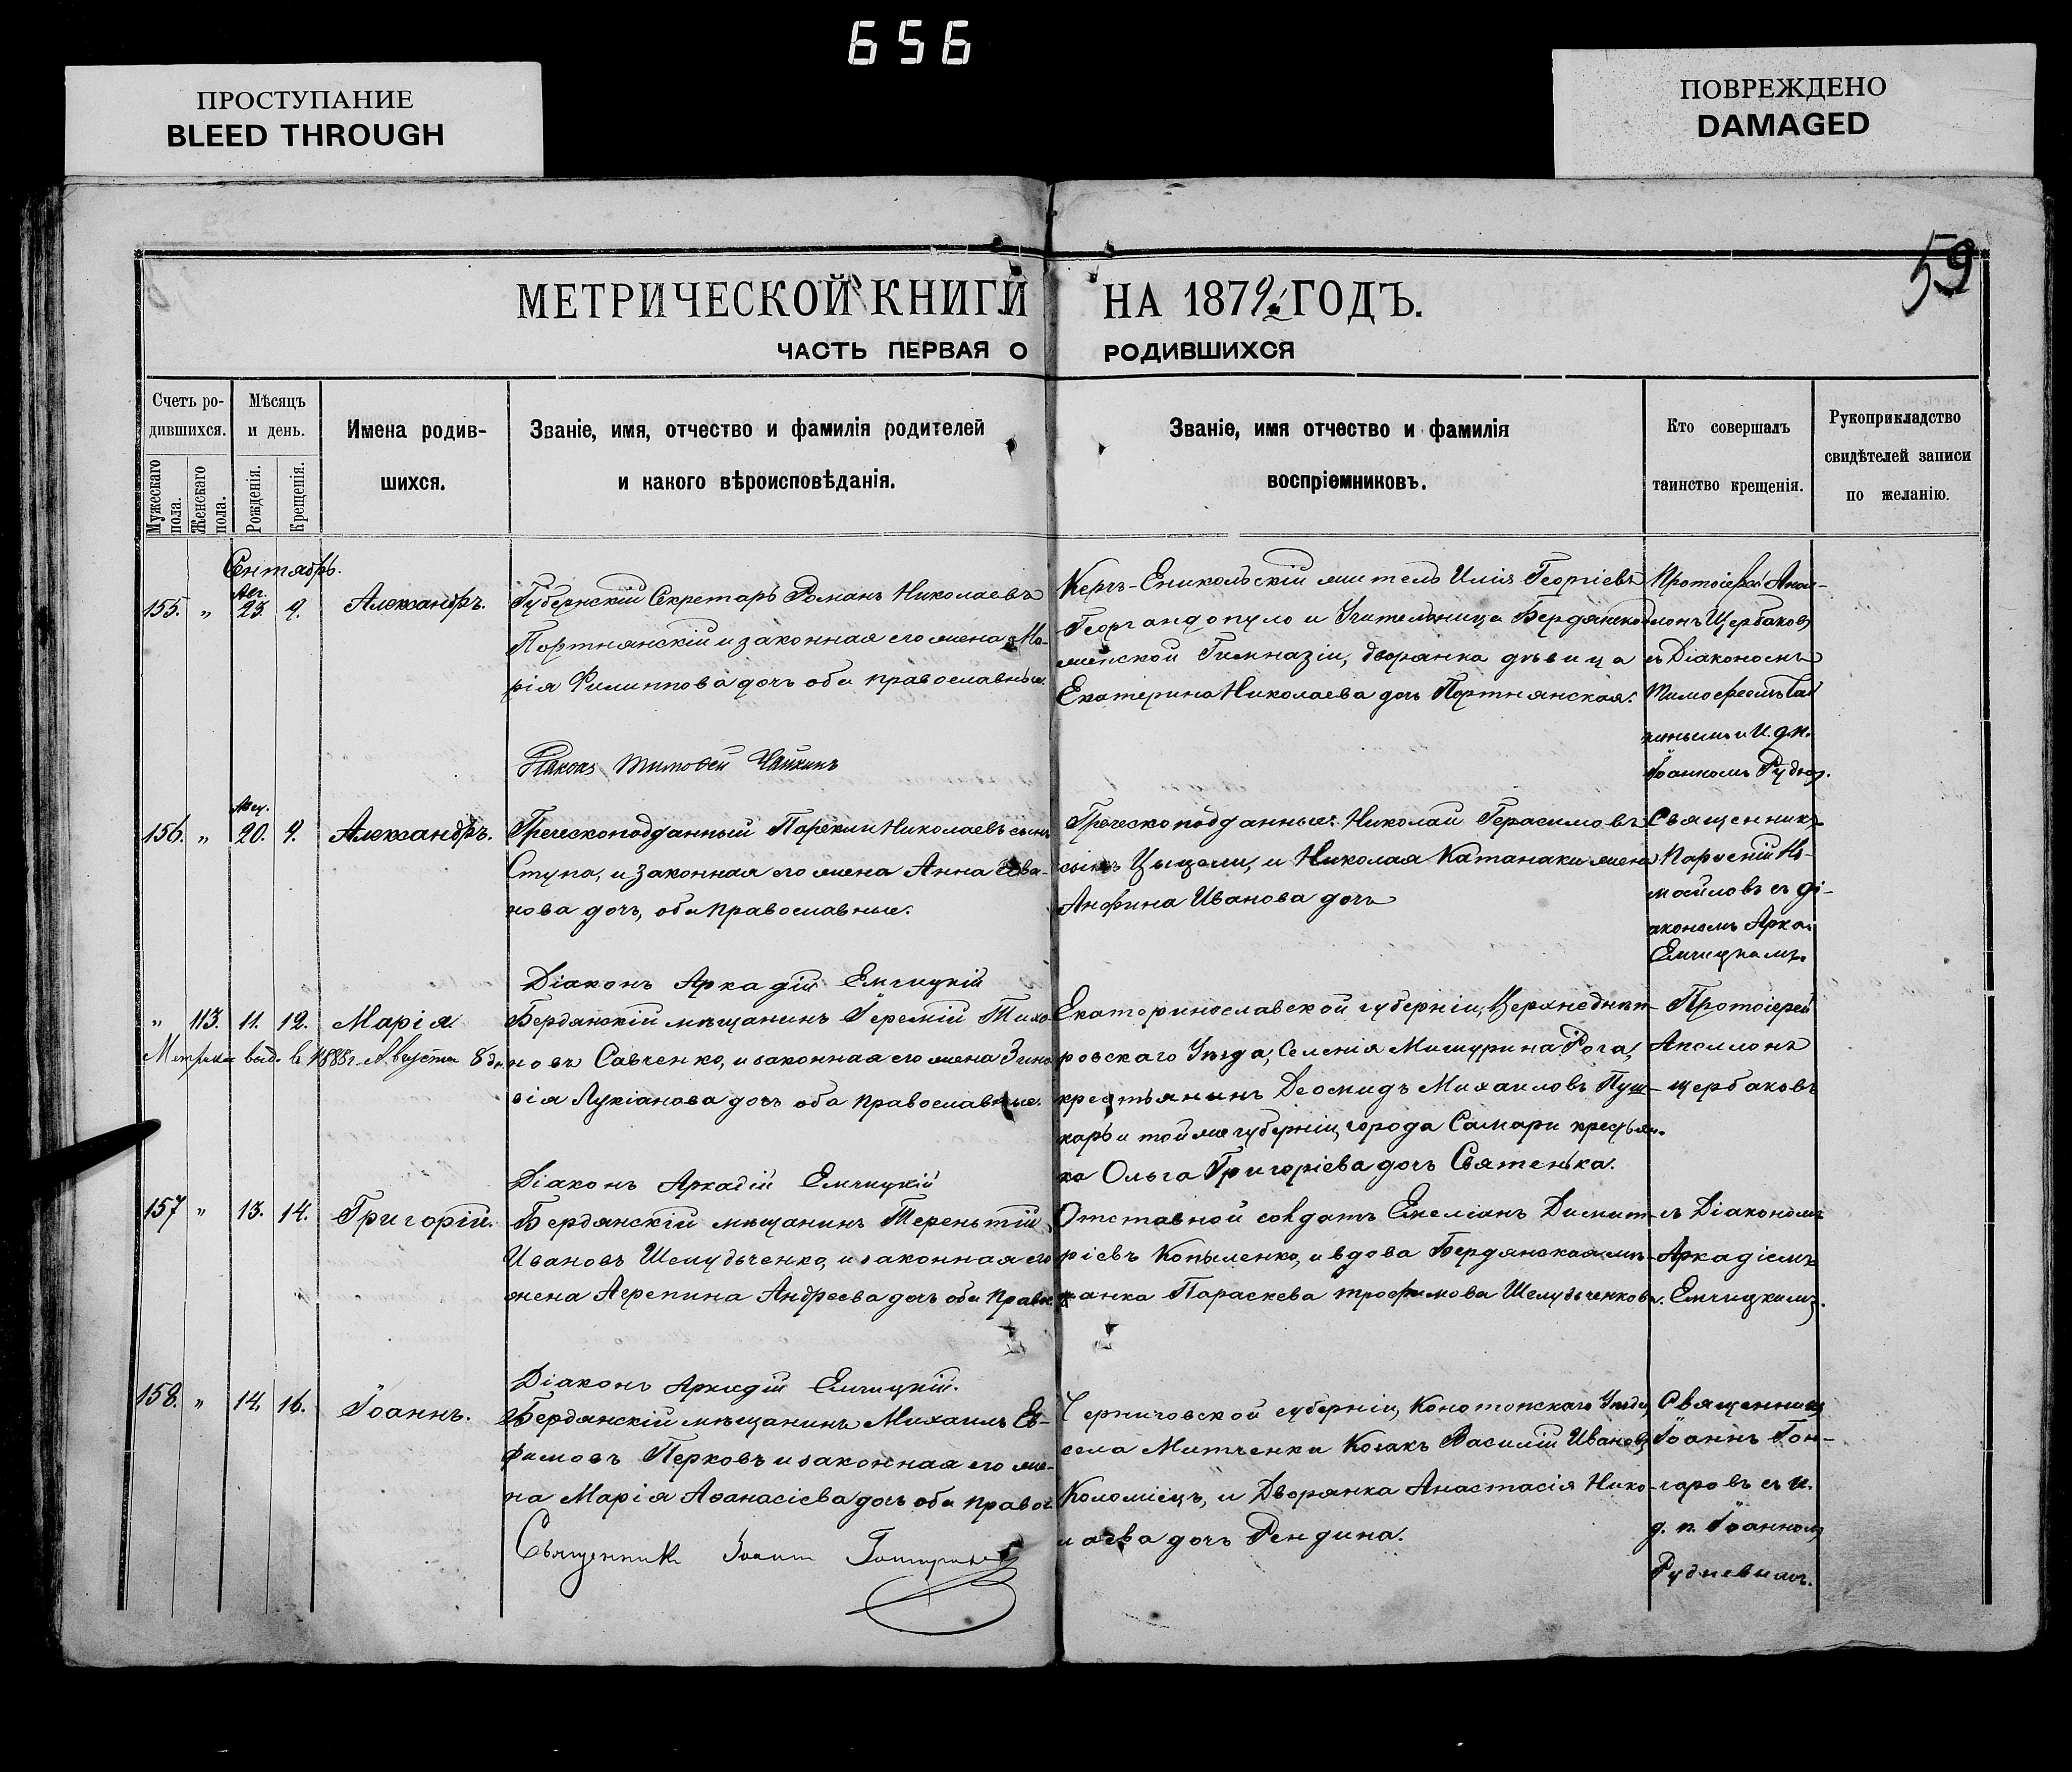 656
ПРОСТУПАНИЕ
BLEED THROUGH
ПОВРЕЖДЕНО
DAMAGED
59
МЕТРИЧЕСКОЙ КНИГИ НА 1879 ГОДЪ.
ЧАСТЬ ПЕРВАЯ О РОДИВШИХСЯ
Счетъ ро-
дившихся.
Мужескаго пола.
Женскаго пола.
Мѣсяцъ
и день.
Рожденія.
Крещенія.
Имена родив-
шихся.
Званіе, имя, отчество и фамилія родителей
и какого вѣроисповѣданія.
Званіе, имя отчество и фамилія
воспріемниковъ.
Кто совершалъ
таинство крещенія.
Рукоприкладство
свидѣтелей записи
по желанію.
Сентябрь.
Авг.
155. „ 23. 9. Александръ.
Губернскій Секретарь Романъ Николаевъ
Портнянскій и законная его жена Ма-
рія Филиппова дочь оба православные.
Діаконъ Тимофей Чайкинъ
Керчь-Еникольскій житель Илія Георгіевъ
Георгандопуло и Учительница Бердянской
женской Гимназіи, дворянка дѣвица
Екатерина Николаева дочь Портнянская.
Протоіерей Апол-
лонъ Щербаковъ
съ Діакономъ
Тимофеемъ Чай
кинымъ и И. д. п.
Іоанномъ Рудн.
Авг.
156. „ 20. 9. Александръ.
Греческоподданный Николаевъ сынъ
Ступа, и законная его жена Анна Ива-
нова дочь, оба православные.
Діаконъ Аркадій Емчицкій
Греческоподданные: Николай Герасимовъ
сынъ и Николая Катанаки жена
Анфиса Иванова дочь
Священникъ
съ ді-
акономъ Арка.
Емчицкимъ.
„ 113. 11. 12. Марія
Метрика выд. въ 1888 г. Августа 8 дн.
Бердянскій мѣщанинъ Іеремій Тихо-
новъ Савченко, и законная его жена Зино
вія Лукіанова дочь оба православные.
Діаконъ Аркадій Емчицкій
Екатеринославской губерніи, Верхнеднѣп-
ровскаго Уѣзда, Селенія Мишурина Рога,
крестьянинъ Деомидъ Михаиловъ Пуш-
карь и той же губерніи, города Самари крестьян-
ка Ольга Григоріева дочь Святенька.
Протоіерей
Аполлонъ
Щербаковъ
157 „ 13. 14. Григорій.
Бердянскій мѣщанинъ Терентій
Ивановъ Шелудьченко, и законная его
жена Агрепина Андреева дочь оба правос.
Діаконъ Аркадій Емчицкій.
Отставной солдатъ Емеліанъ Димит-
ріевъ Копыленко, и вдова Бердянская мѣ-
щанка Параскева Трофимова Шелудьченкова.
съ Діакономъ
Аркадіемъ
Емчицкимъ.
158. „ 14. 16. Іоаннъ.
Бердянскій мѣщанинъ Михаилъ Ев-
фимовъ Перковъ и законная его же-
на Марія Аѳанасіева дочь оба правос.
Священникъ Іоаннъ Гончаровъ
Черниговской губерніи, Конотопскаго Уѣзда,
села Митченки Козакъ Василій Ивановъ
Коломіецъ, и Дворянка Анастасія Нико-
лаева дочь Рендина.
Священникъ
Іоаннъ Гон-
чаровъ съ и.
д. п. Іоанномъ
Рудневымъ.